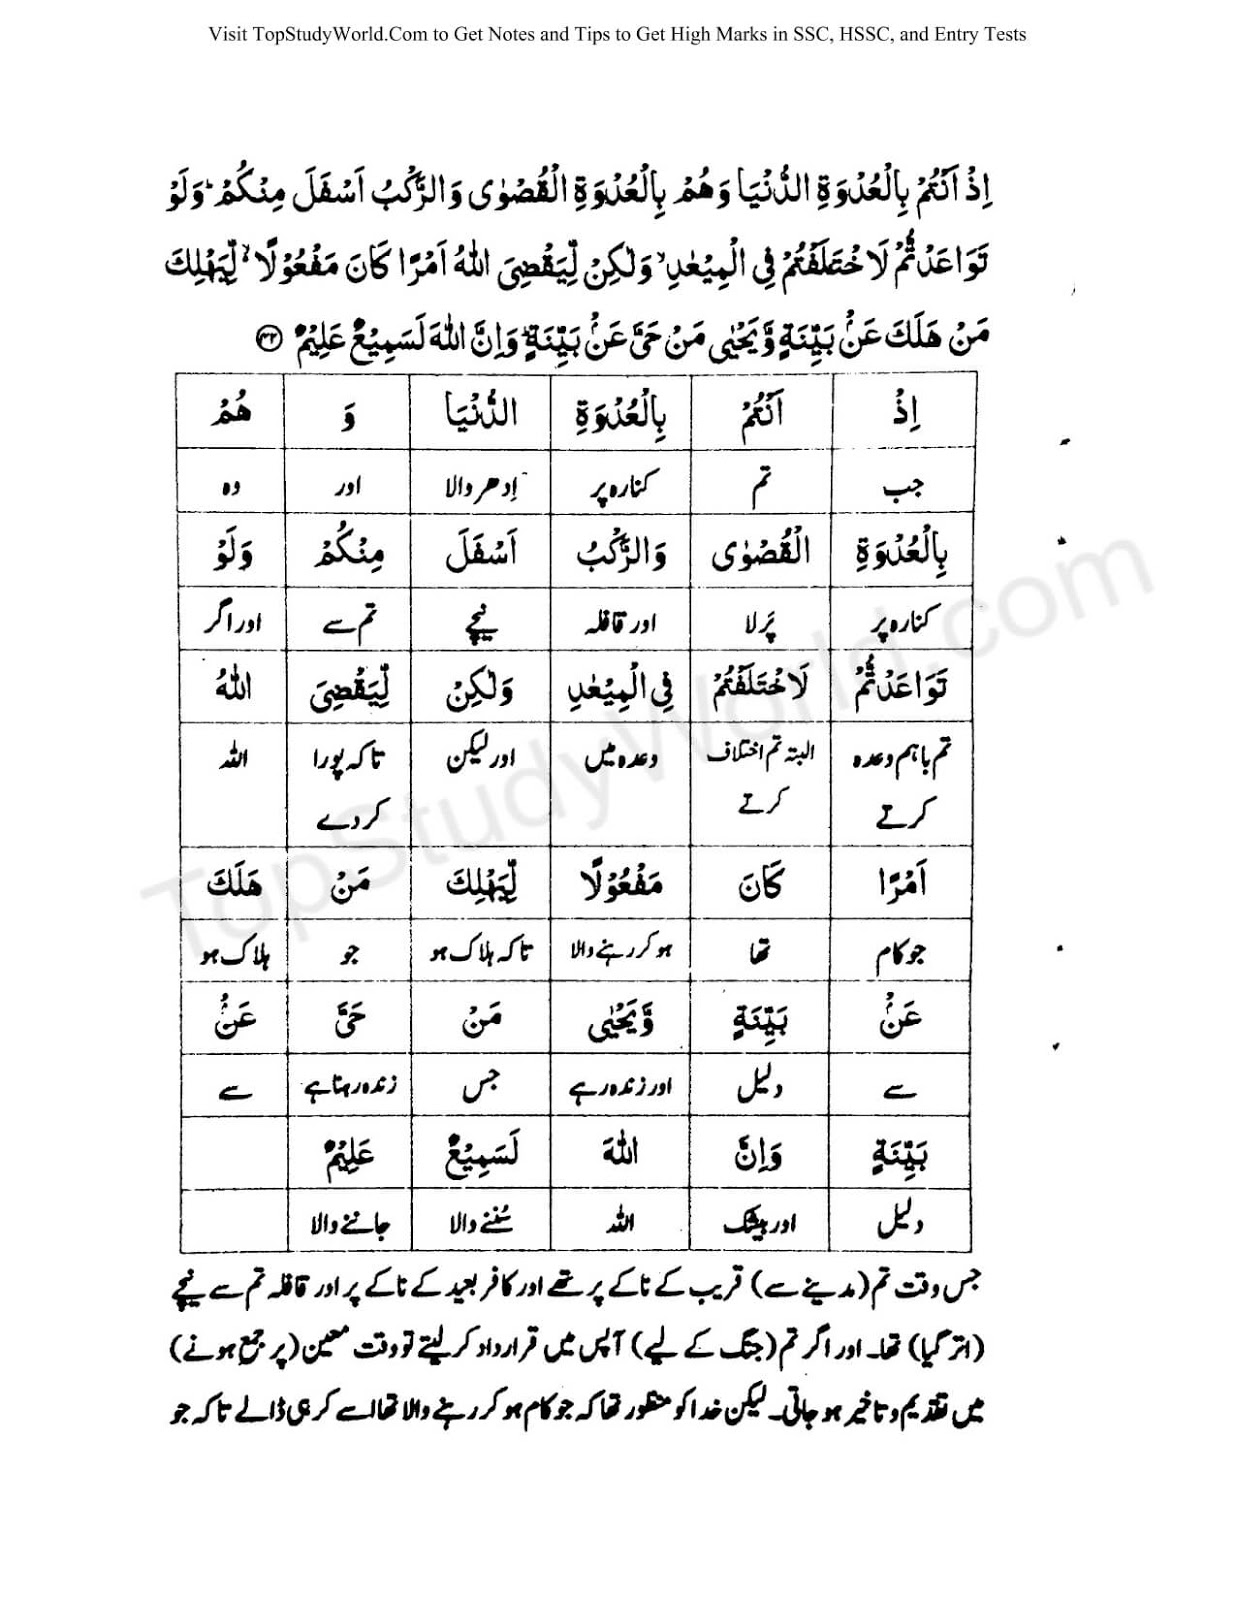 Visit TopStudyWorld.Com to Get Notes and Tips to Get High Marks in SSC, HSSC, and Entry Tests
اِذْ اَنْتُمْ بِالْعُدْوَةِ الدُّنْيَا وَهُمْ بِالْعُدْوَةِ الْقُصْوٰى وَالرَّكْبُ اَسْفَلَ مِنْكُمْ ؕ وَلَوْ
تَوَاعَدْتُّمْ لَاخْتَلَفْتُمْ فِى الْمِيْعٰدِ ۙ وَلٰكِنْ لِّيَقْضِىَ اللّٰهُ اَمْرًا كَانَ مَفْعُوْلًا ۙ لِّيَهْلِكَ
مَنْ هَلَكَ عَنْۢ بَيِّنَةٍ وَّيَحْيٰى مَنْ حَىَّ عَنْۢ بَيِّنَةٍ ؕ وَاِنَّ اللّٰهَ لَسَمِيْعٌ عَلِيْمٌ ۝۴۲
اِذْ اَنْتُمْ بِالْعُدْوَةِ الدُّنْيَا وَ هُمْ
جب تم کنارہ پر اِدھر والا اور وہ
بِالْعُدْوَةِ الْقُصْوٰى وَالرَّكْبُ اَسْفَلَ مِنْكُمْ وَلَوْ
کنارہ پر پَرلا اور قافلہ نیچے تم سے اور اگر
تَوَاعَدْتُّمْ لَاخْتَلَفْتُمْ فِى الْمِيْعٰدِ وَلٰكِنْ لِّيَقْضِىَ اللّٰهُ
تم باہم وعدہ کرتے البتہ تم اختلاف کرتے وعدہ میں اور لیکن تاکہ پورا کردے اللہ
اَمْرًا كَانَ مَفْعُوْلًا لِّيَهْلِكَ مَنْ هَلَكَ
جو کام تھا ہو کر رہنے والا تاکہ ہلاک ہو جو ہلاک ہو
عَنْۢ بَيِّنَةٍ وَّيَحْيٰى مَنْ حَىَّ عَنْۢ
سے دلیل اور زندہ رہے جس زندہ رہتا ہے سے
بَيِّنَةٍ وَاِنَّ اللّٰهَ لَسَمِيْعٌ عَلِيْمٌ
دلیل اور بیشک اللہ سُننے والا جاننے والا
جس وقت تم (مدینے سے) قریب کے ناکے پر تھے اور کافر بعید کے ناکے پر اور قافلہ تم سے نیچے
(اتر گیا) تھا۔ اور اگر تم (جنگ کے لیے) آپس میں قرارداد کر لیتے تو وقت معین (پر جمع ہونے)
میں تقدیم و تاخیر ہو جاتی۔ لیکن خدا کو منظور تھا کہ جو کام ہو کر رہنے والا تھا اسے کر ہی ڈالے تاکہ جو
TopStudyWorld.com